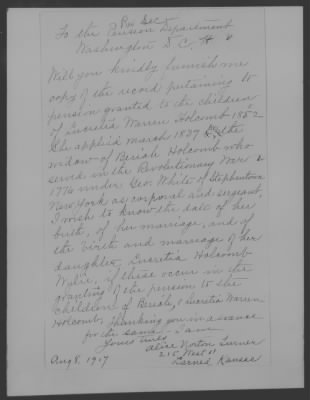 Rev Sec
To the Pension Department
Washington D.C.
Will you kindly furnish me
copy of the record pertaining to
pension granted to the children
of Lucretia Warren Holcomb 1852
She applied march 1837 the
widow of Beriah Holcomb who
served in the Revolutionary War
1776 under Geo. White of Stephentown
New York as corporal and sergeant,
I wish to know the date of her
birth, of her marriage, and of
the birth and marriage of her
daughter, Lucretia Holcomb
if these occur in the
granting of the pension to the
children of Beriah, & Lucretia Warren
Holcomb. Thanking you in advance
for the same - I am
Yours truly
Alice Norton Turner
215 West 11
Aug 8, 1917 Larned Kansas